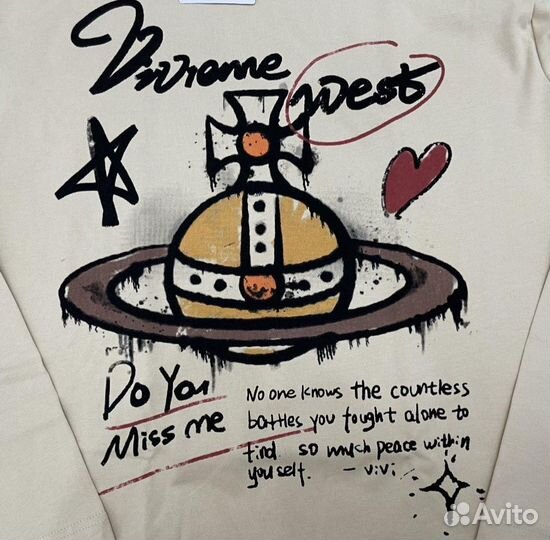 Vivienne
West
Do You
Miss me
No one knows the countless
battles you fought alone to
find so much peace within
yourself. - vivi
Avito